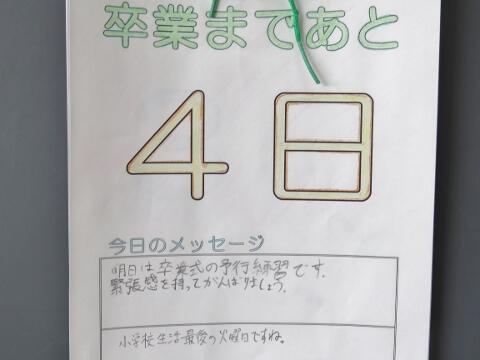 卒業まであと
4日
今日のメッセージ
明日は卒業式の予行練習です。
緊張感を持ってがんばりましょう。
小学校生活最後の火曜日ですね。